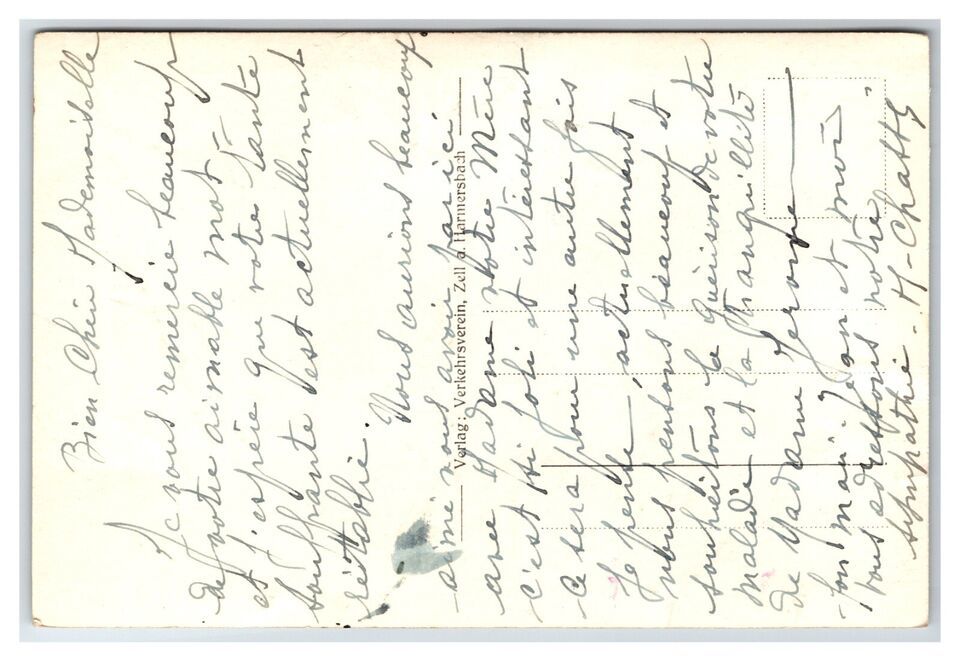 Bien Chère Mademoiselle
Je vous remercie beaucoup
de votre aimable mot
et j'espère que votre santé
souffrante s'est actuellement
rétablie.
Nous aurions beaucoup
aimé vous avoir par ici
avec Madame votre Mère
c'est si joli et intéressant
ce sera pour une autre fois
Je pense, actuellement,
nous pensons beaucoup et
souhaitons la guérison de votre
malade et la tranquillité
de Madame
mon mari Jean et moi
vous adressons notre
sympathie. M. Chatty
Verlag: Verkehrsverein, Zell a. Harmersbach